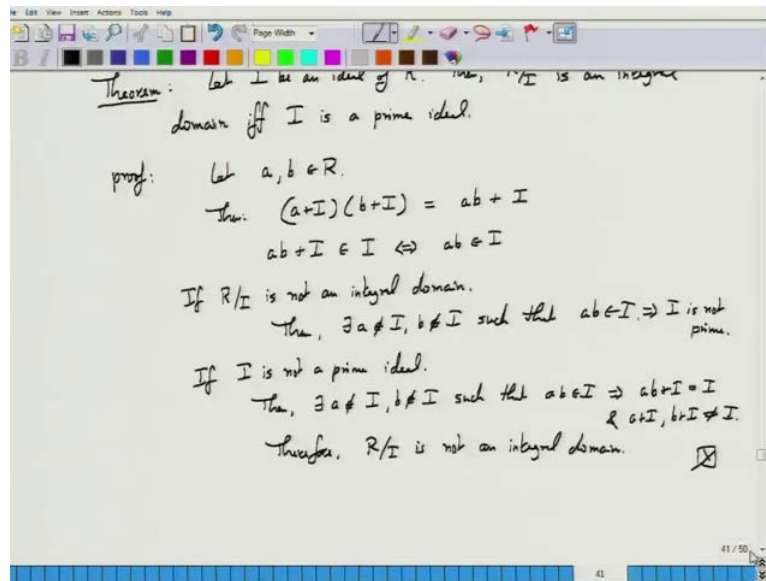 Edit View Insert Actions Tools Help
Page Width
Theorem: Let I be an ideal of R. Then, R/I is an integral
domain iff I is a prime ideal.
proof: Let a, b ∈ R.
Then: (a+I)(b+I) = ab + I
ab + I ∈ I ⇔ ab ∈ I
If R/I is not an integral domain.
Then, ∃ a ∉ I, b ∉ I such that ab ∈ I. ⇒ I is not
prime.
If I is not a prime ideal.
Then, ∃ a ∉ I, b ∉ I such that ab ∈ I ⇒ ab+I = I
& a+I, b+I ≠ I.
Therefore, R/I is not an integral domain.
41 / 50
41